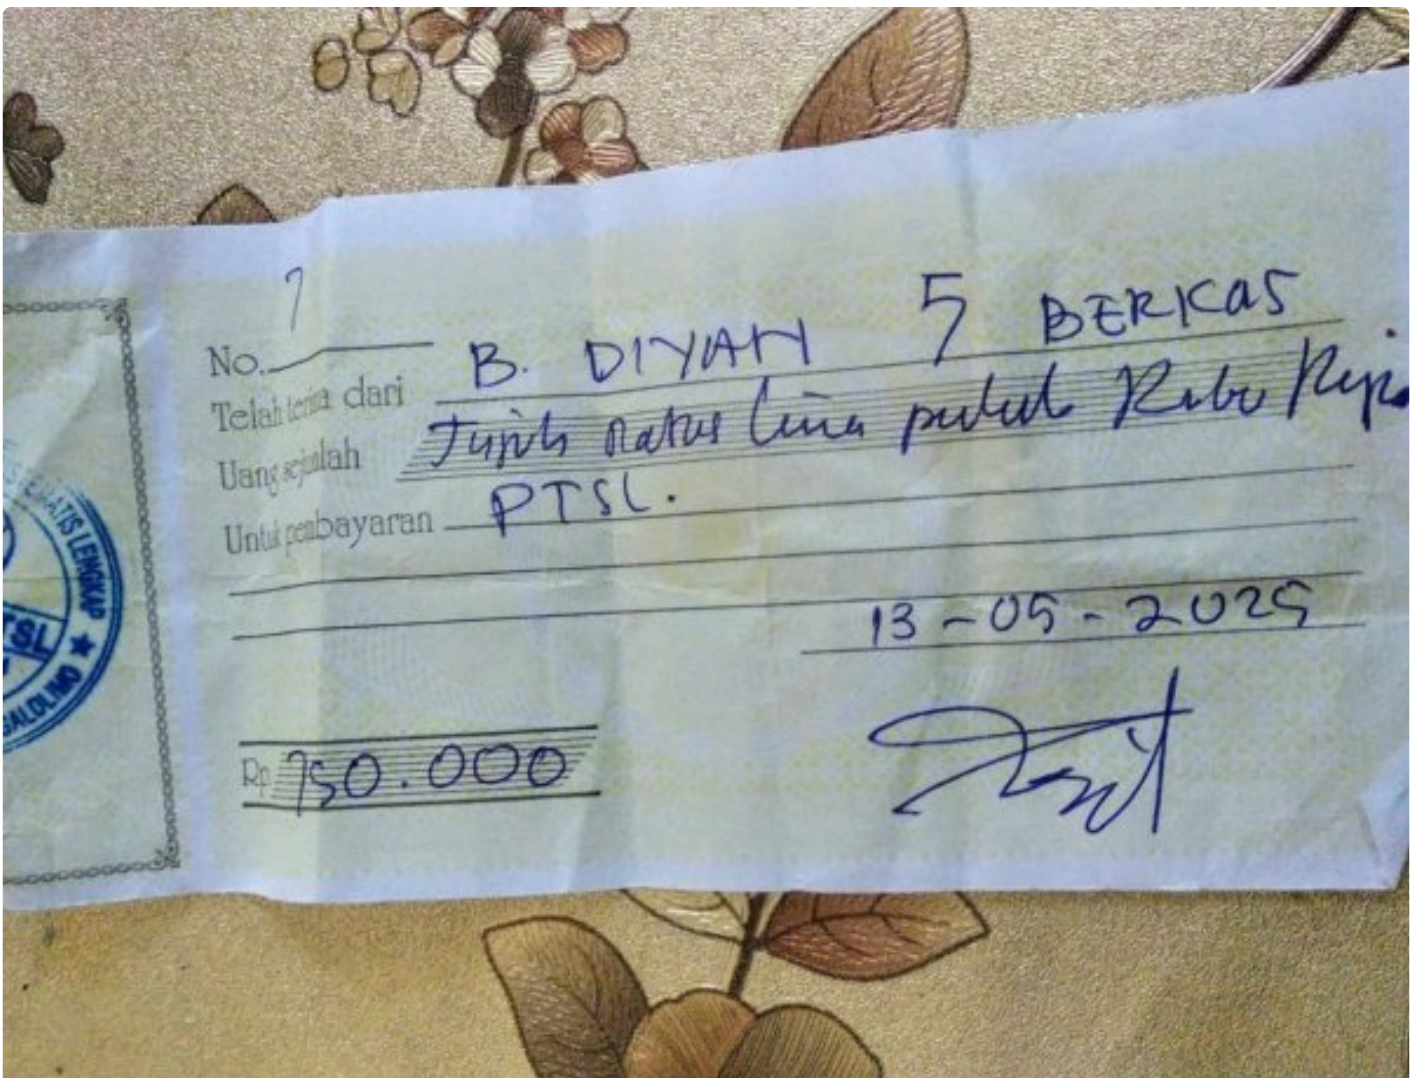 No. 7
Telah terima dari B. DIYAH 5 BERKAS
Uang sejumlah Tujuh Ratus lima puluh Ribu Rupia
Untuk pembayaran PTSL.
13-05-2025
Rp 750.000
EMATIS LENGKAP ★
TSL
ALDLIMO